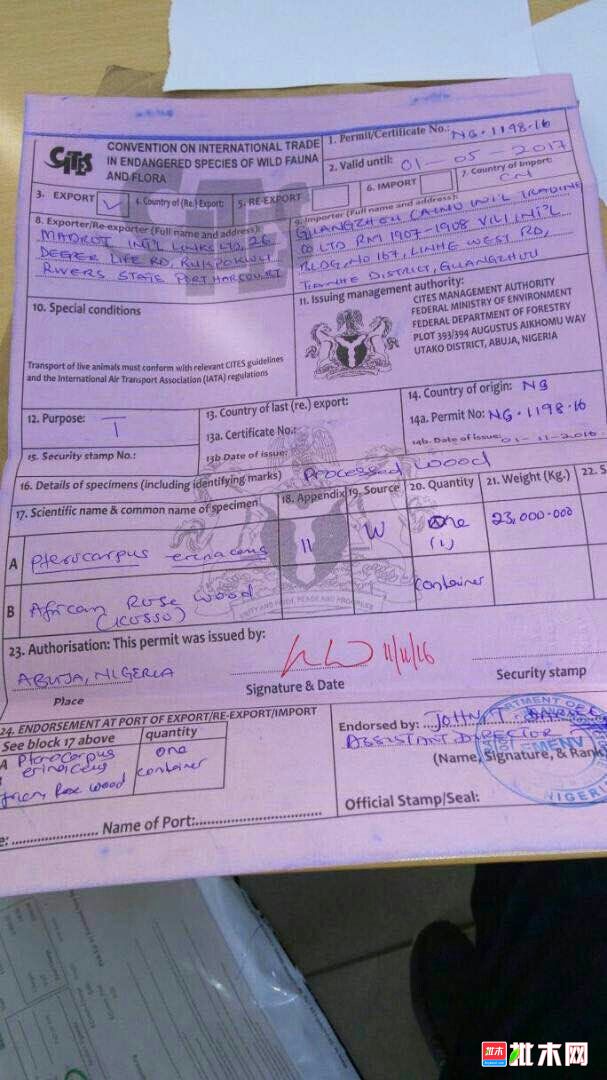 CITES
CONVENTION ON INTERNATIONAL TRADE
IN ENDANGERED SPECIES OF WILD FAUNA
AND FLORA
1. Permit/Certificate No.: NG.1198.16
2. Valid until: 01-05-2017
3. EXPORT
4. Country of (Re) Export:
5. RE-EXPORT
6. IMPORT
7. Country of Import:
CN
8. Exporter/Re-exporter (Full name and address):
MADRUT INT'L LINKS LTD, 26
DEEPER LIFE RD,
RIVERS STATE PORT HARCOURT
9. Importer (Full name and address):
INT'L TRADING
CO LTD RM 1907-1908 VILI INT'L
BLDG, NO 167, LINHE WEST RD,
TIANHE DISTRICT, GUANGZHOU
10. Special conditions
Transport of live animals must conform with relevant CITES guidelines
and the International Air Transport Association (IATA) regulations
11. Issuing management authority:
CITES MANAGEMENT AUTHORITY
FEDERAL MINISTRY OF ENVIRONMENT
FEDERAL DEPARTMENT OF FORESTRY
PLOT 393/394 AUGUSTUS AIKHOMU WAY
UTAKO DISTRICT, ABUJA, NIGERIA
12. Purpose: T
13. Country of last (re.) export:
13a. Certificate No.:
13b Date of issue:
14. Country of origin: NG
14a. Permit No: NG.1198.16
14b. Date of issue: 01-11-2016
15. Security stamp No.:
16. Details of specimens (including identifying marks) Processed Wood
17. Scientific name & common name of specimen
18. Appendix
19. Source
20. Quantity
21. Weight (Kg.)
22. S
A Pterocarpus erinaceus II W One (1) 23,000.000
B African Rose Wood container
(KOSSO)
UNITY AND FAITH, PEACE AND PROGRESS
23. Authorisation: This permit was issued by:
ABUJA, NIGERIA
Place
11/11/16
Signature & Date
Security stamp
24. ENDORSEMENT AT PORT OF EXPORT/RE-EXPORT/IMPORT
See block 17 above
quantity
A Pterocarpus one
erinaceus container
Rose Wood
Endorsed by: JOHN T.
ASSISTANT DIRECTOR
(Name, Signature, & Rank
Official Stamp/Seal:
Name of Port:
批木
批木网